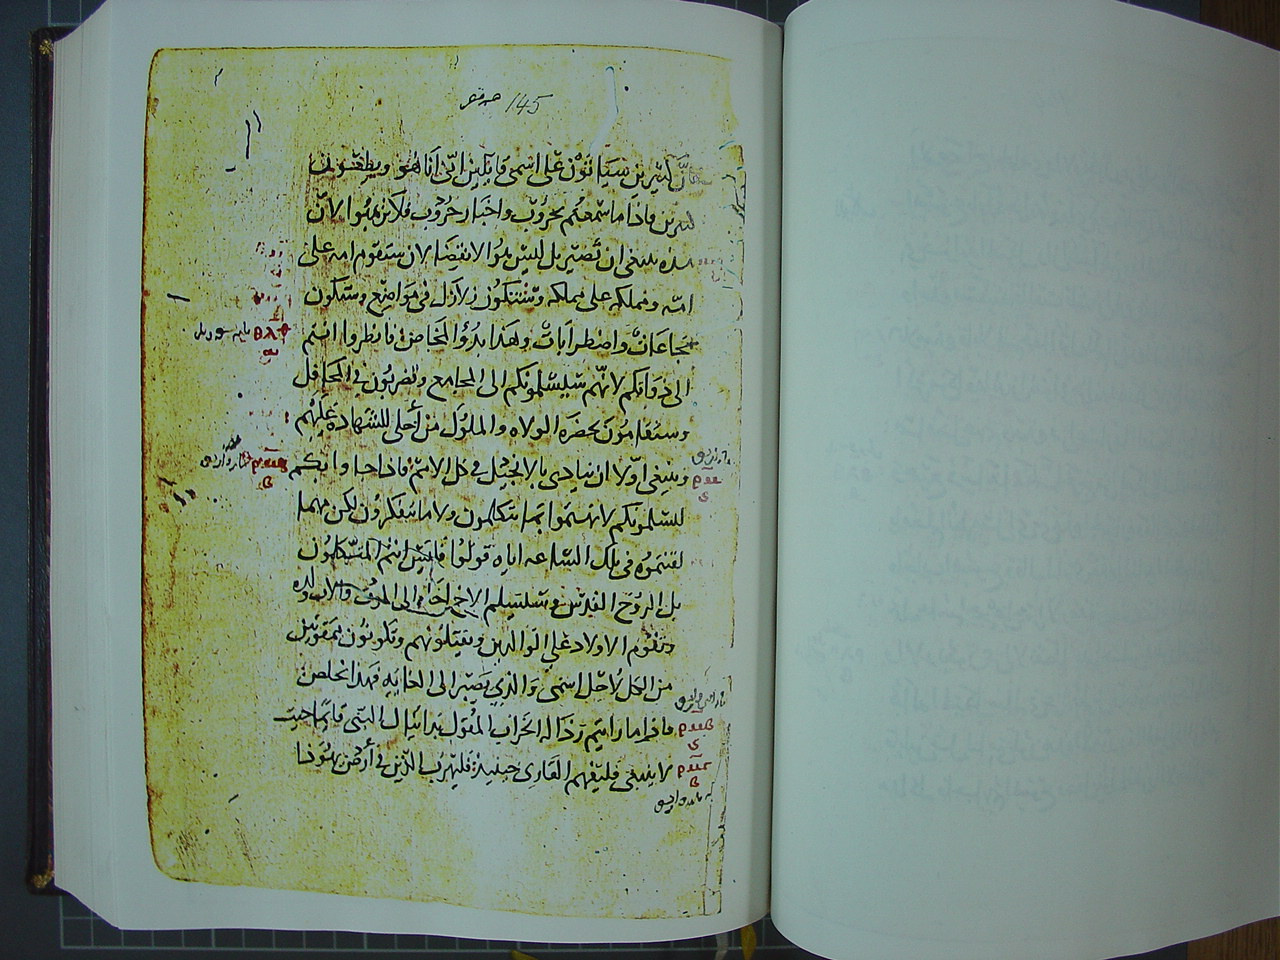 145
فانّ كثيرين سياتون على اسمى قايلين انّى انا هو ويطغون
كثيرين فاذا ما سمعتم بحروب واخبار حروب فلا ترتهبوا لانّ
هذه ينبغى ان تصير بل ليس يلوا الانقضا لان ستقوم امه على
امّه ومملكه على مملكه وستكون زلازل فى مواضع وستكون
مجاعات واضطرابات وهذا بدؤ المخاض فانظروا انتم
الى ذواتكم لانّهم سيسلمونكم الى المجامع وتضربون فى المحافل
وستقامون بحضرة الولاه والملوك من أجلى للشهاده عليهم
وينبغى اوّلا ان ينادى بالانجيل فى كل الامم فاذا جاوا بكم
ليسلمونكم لا تهتموا بما تتكلمون ولا ما تفكرون لكن مهما
لقنتموه فى تلك الساعه اياه قولوا فليس انتم المتكلمون
بل الروح القدس وسيسلم الاخ اخاه الى الموت والاب ولده
وتقوم الاولاد على الوالدين ويقتلونهم وتكونون ممقوتين
من الكل لاجل اسمى والذى يصبر الى الغايه فهذا يخلص
فاذا ما رايتم رذالة الخراب المقول بدانيال النبى قايما حيث
لا ينبغى فليفهم القارى حينيذ فليهرب الذين فى أرض يهوذا